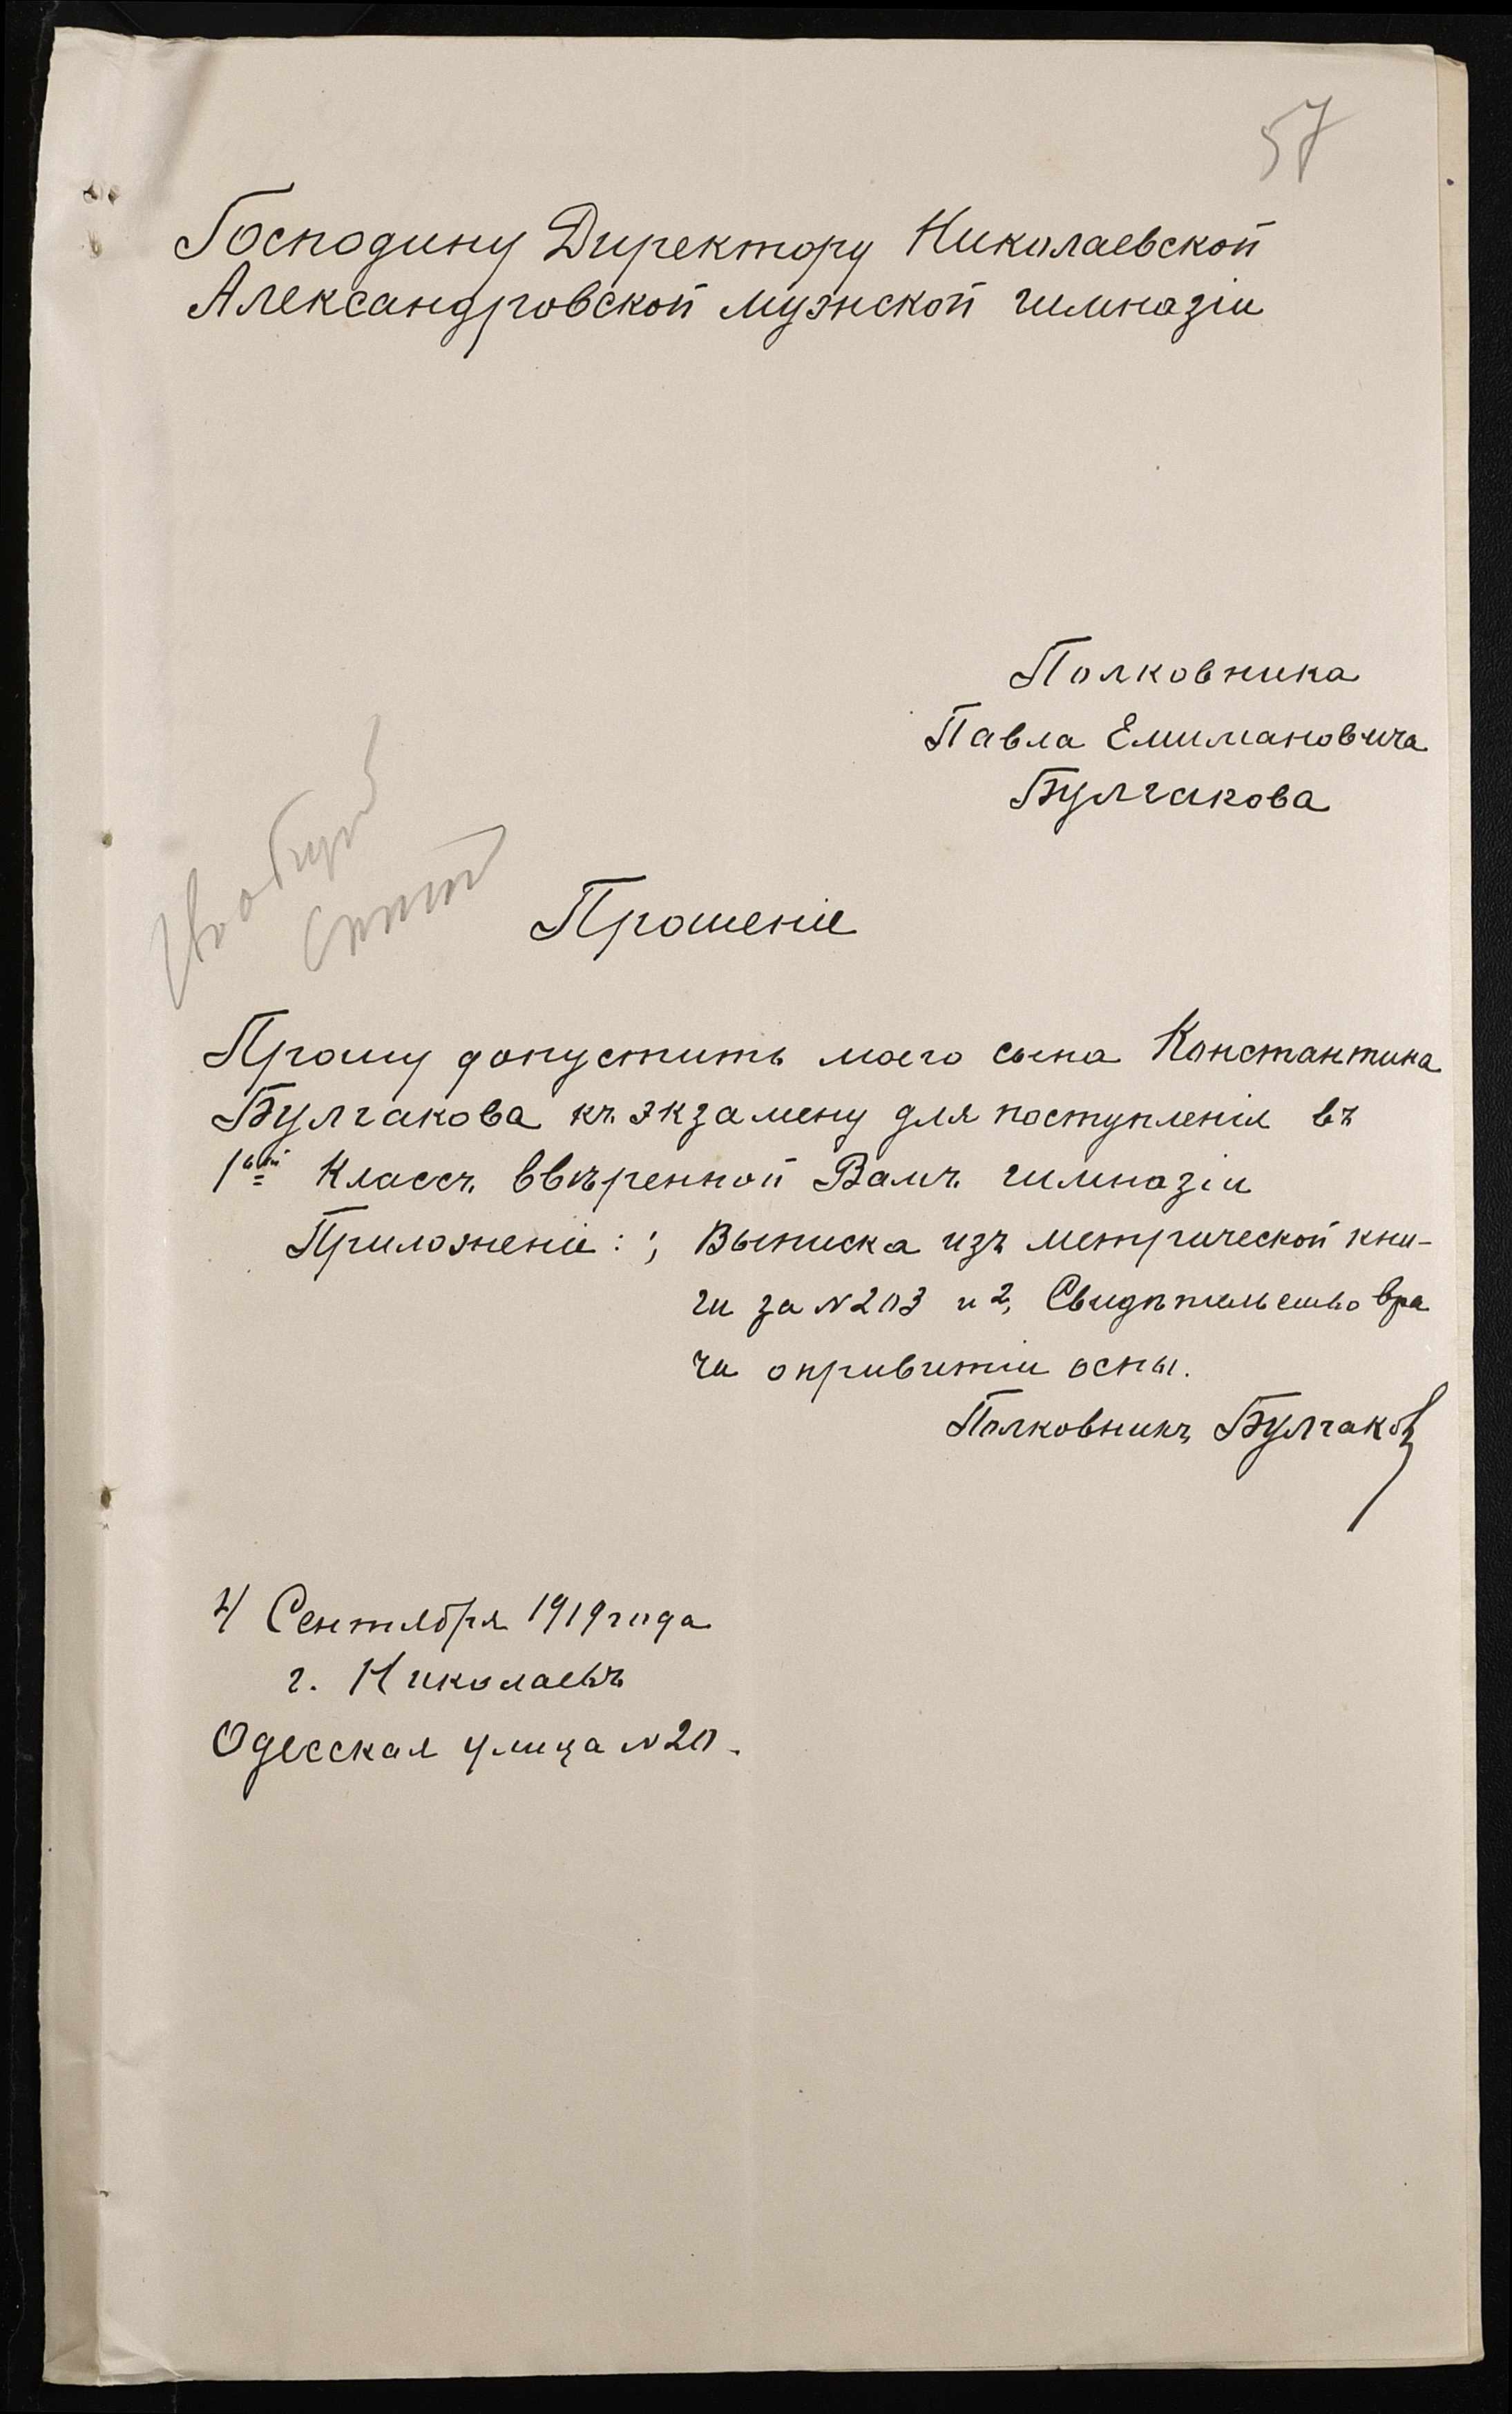 57
Господину Директору Николаевской
Александровской мужской гимназіи
Полковника
Павла Емимановича
Булгакова
Прошеніе
Прошу допустить моего сына Константина
Булгакова къ экзамену для поступленія въ
1ый Классъ ввѣренной Вамъ гимназіи
Приложеніе: 1, Выписка изъ метрической кни-
ги за №203 и 2, Свидѣтельство вра
ча о привитіи оспы.
Полковникъ Булгаковъ
4 Сентября 1919 года
г. Николаевъ
Одесская улица №20.